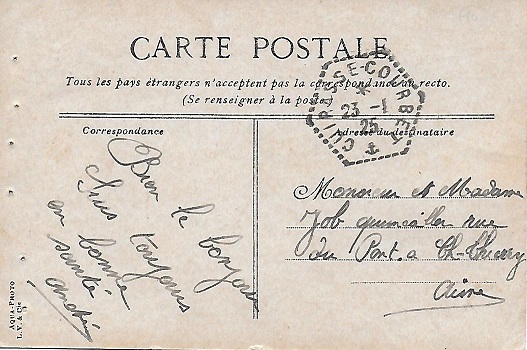 CARTE POSTALE
Tous les pays étrangers n'acceptent pas la correspondance au recto.
(Se renseigner à la poste)
CUIRASSÉ-COURBET
23 -1
25
Correspondance
Adresse du destinataire
Bien le bonjour
Suis toujours
en bonne
santé
André
Monsieur et Madame
Job quincailler rue
du Pont. a Ch-Thierry
Aisne
AQUA-PHOTO
L. V. & Cie